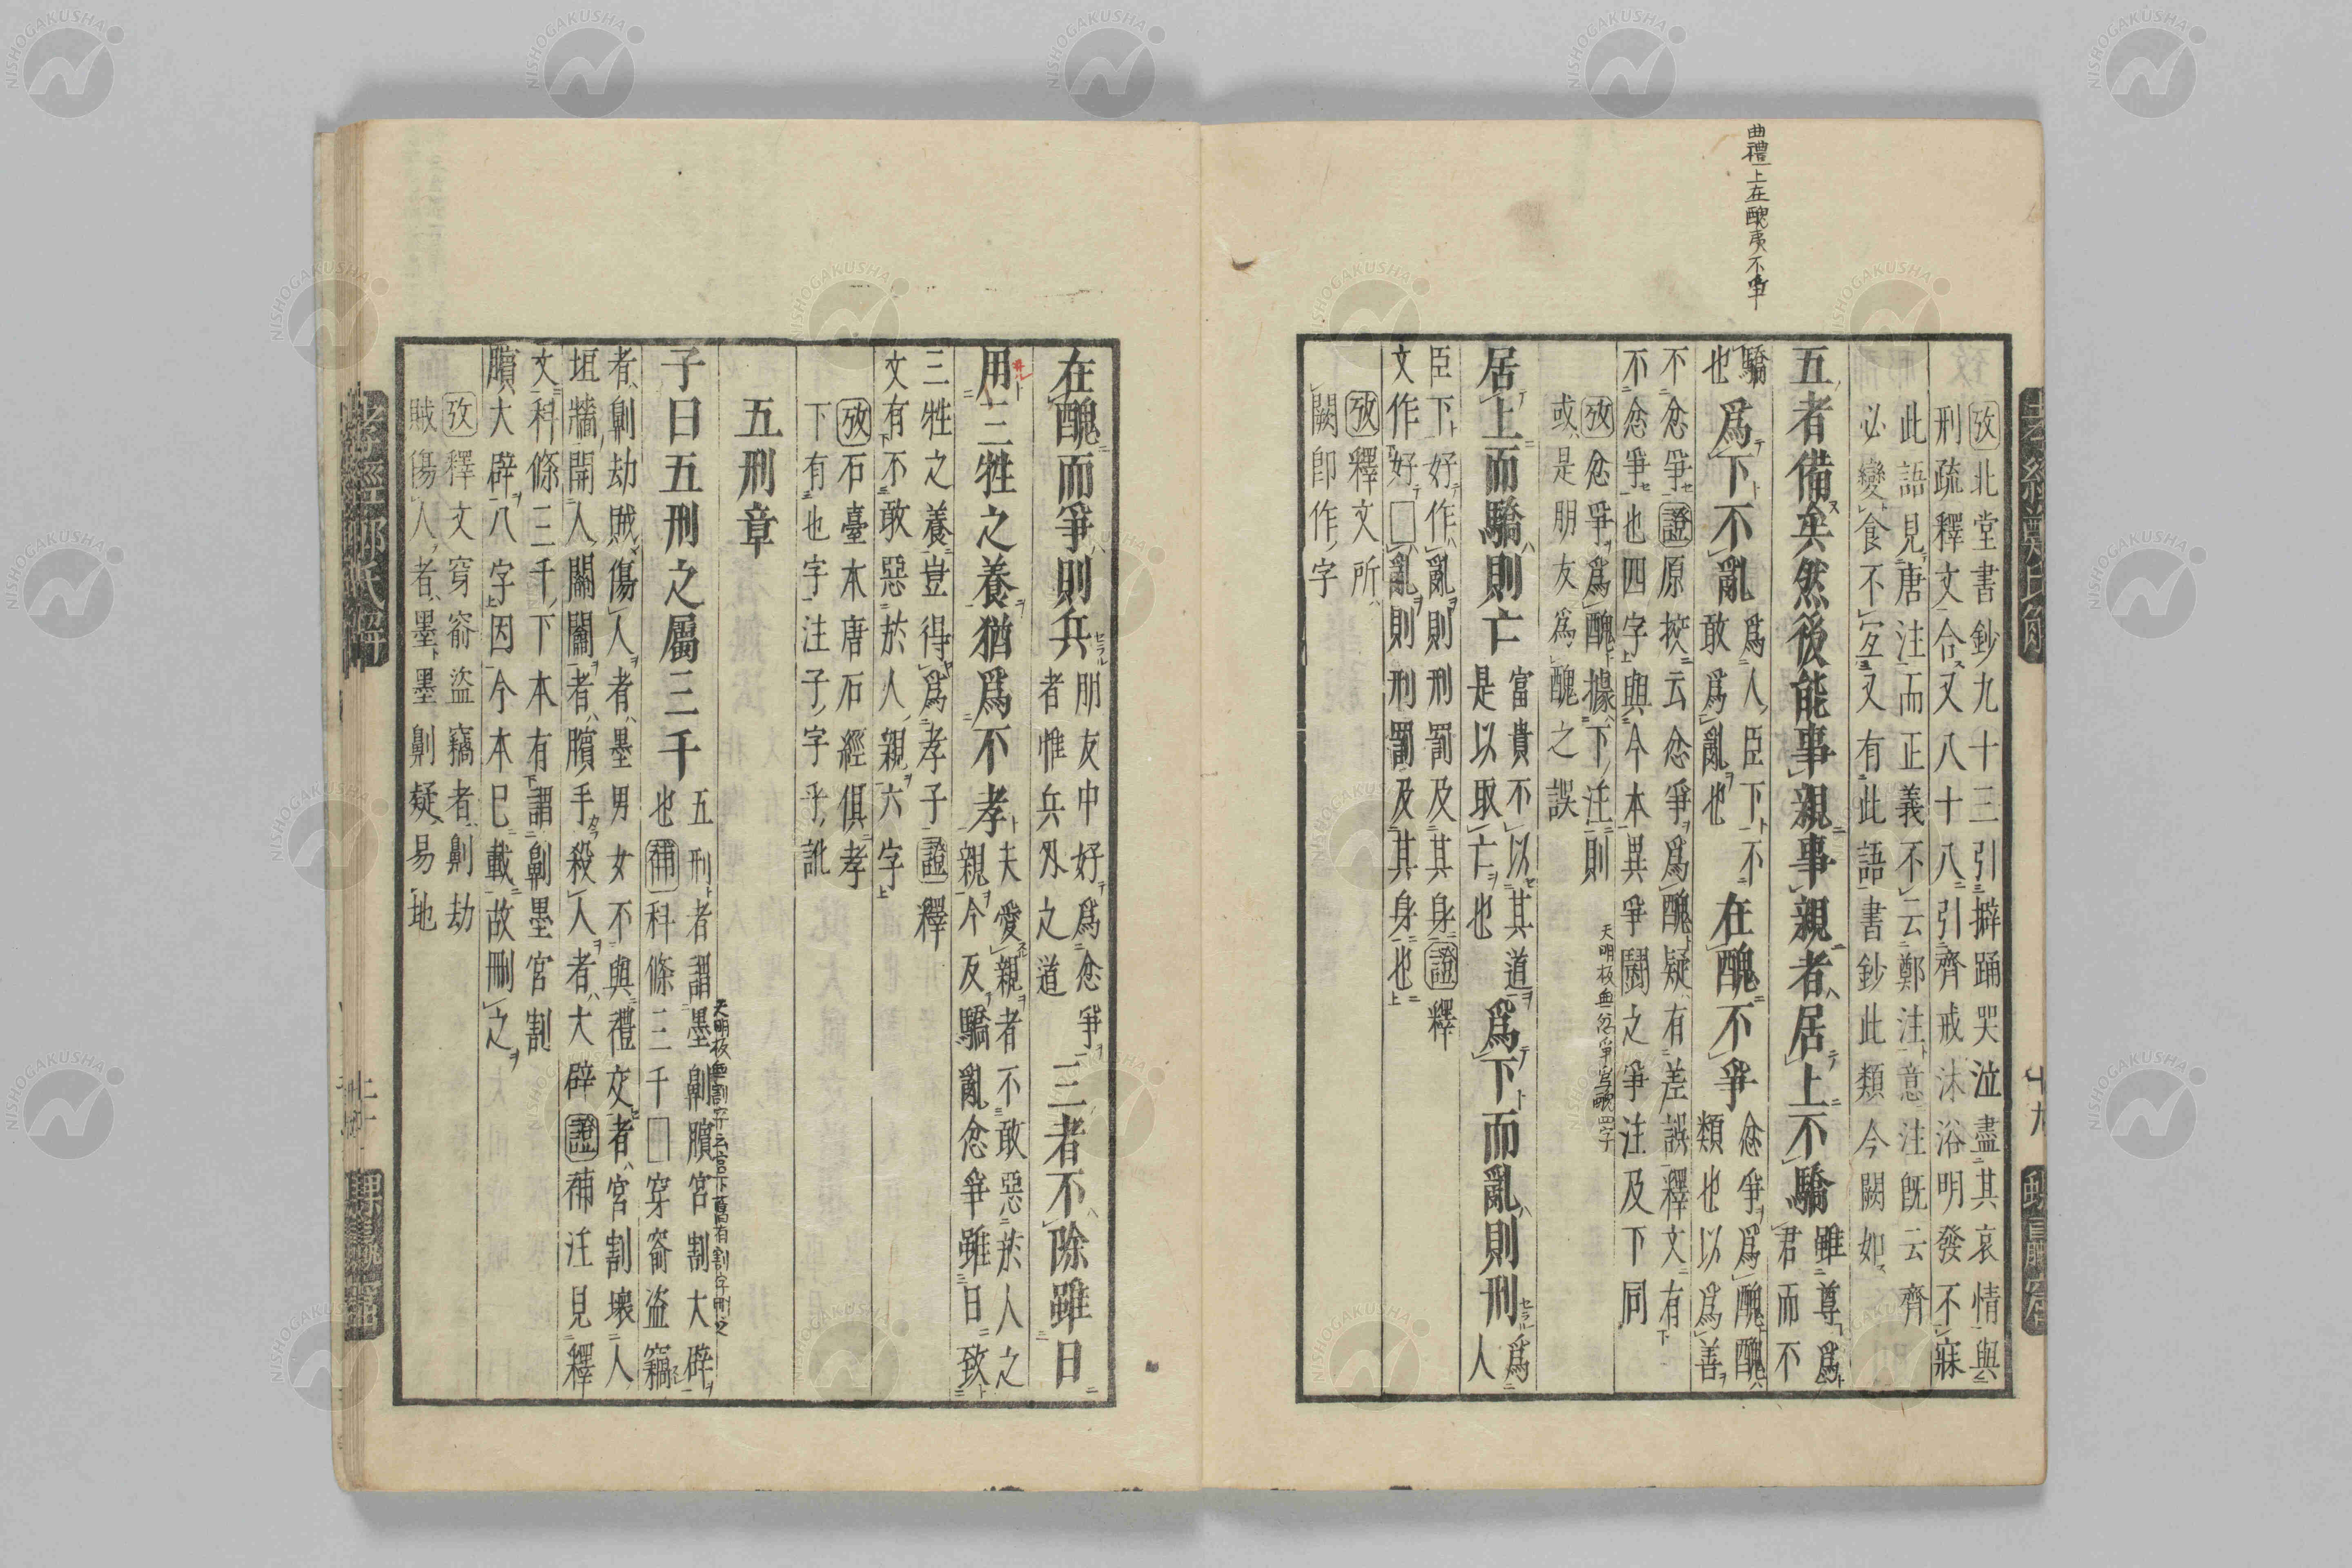 曲禮上在醜夷不爭
攷北堂書鈔九十三引擗踊哭泣盡其哀情與
刑疏釋文合又八十八引齊戒沐浴明發不寐
此語見唐注而正義不云鄭注意注既云齊
必變食不宜又有此語書鈔此類今闕如
五者備矣然後能事親事親者居上不驕
雖尊爲
君而不
驕
也
爲下不亂
爲人臣下不
敢爲亂也
在醜不爭
忿爭爲醜醜
類也以爲善
不忿爭證原挍云忿爭爲醜疑有差誤釋文有
不忿爭也四字與今本異爭鬪之爭注及下同
攷忿爭爲醜據下注則
或是朋友爲醜之誤
天明板無忿爭爲醜四字
居上而驕則亡
富貴不以其道
是以取亡也
爲下而亂則刑
爲
人
臣下好作亂則刑罰及其身證釋
文作好□亂則刑罰及其身也
攷釋文所
闕卽作字
孝經鄭氏解
十九
在醜而爭則兵
朋友中好爲忿爭
者惟兵刃之道
三者不除雖日
用三牲之養猶爲不孝
夫愛親者不敢惡於人之
親今反驕亂忿爭雖日致
三牲之養豈得爲孝子證釋
文有不敢惡於人親六字
攷石臺本唐石經俱孝
下有也字注子字乎訛
五刑章
子曰五刑之屬三千
五刑者謂墨劓臏宮割大辟
也補科條三千□穿窬盜竊
天明板無割字云宮下舊有割字刪之
者劓劫賊傷人者墨男女不與禮交者宮割壞人
垣牆開人關闟者臏手殺人者大辟證補注見釋
文科條三千下本有謂劓墨宮割
臏大辟八字因今本已載故刪之
攷釋文穿窬盜竊者劓劫
賊傷人者墨墨劓疑易地
孝經鄭氏解